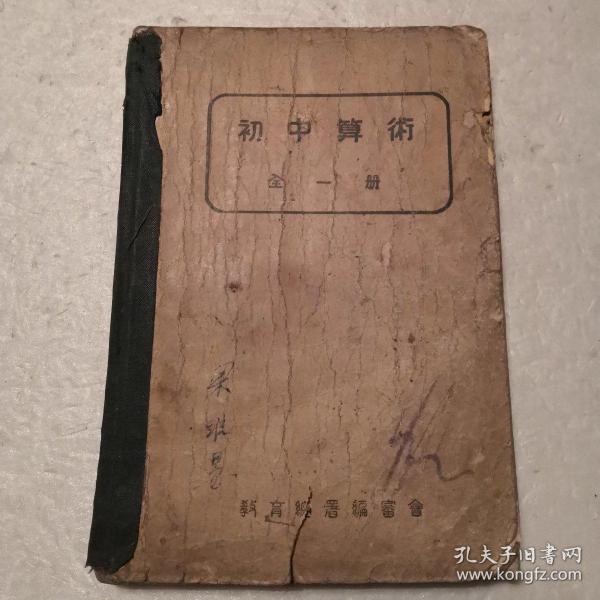 初中算術
全一册
教育總署編審會
孔夫子旧書网
www.kongfz.com